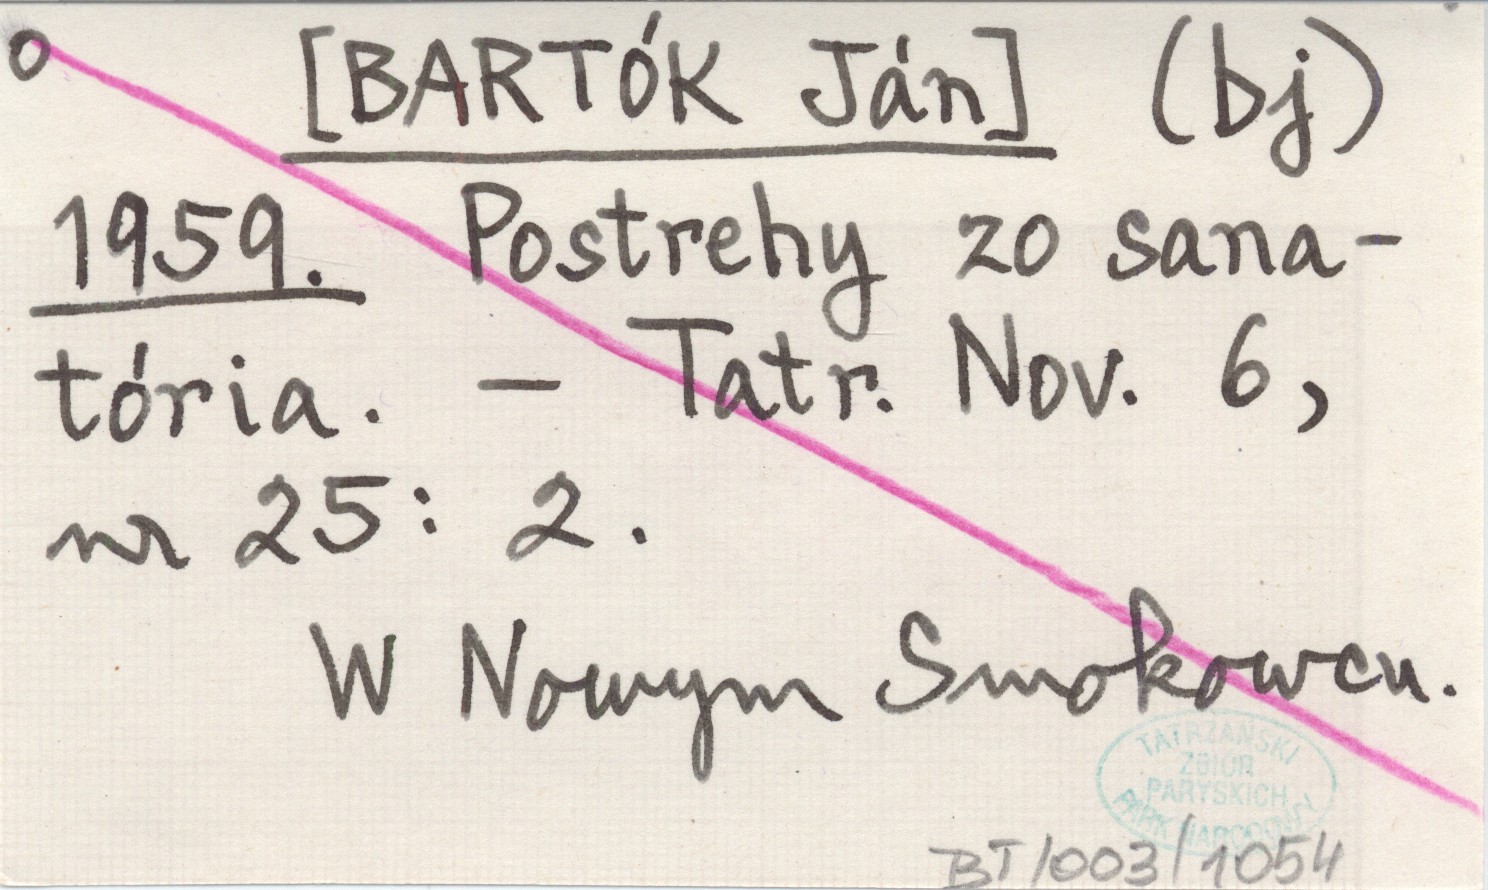 [BARTÓK Ján] (bj)
1959. Postrehy zo sana-
tória. – Tatr. Nov. 6,
nr 25: 2.
W Nowym Smokowcu.
TATRZAŃSKI
ZBIÓR
PARYSKICH
PARK NARODOWY
BT/003/1054